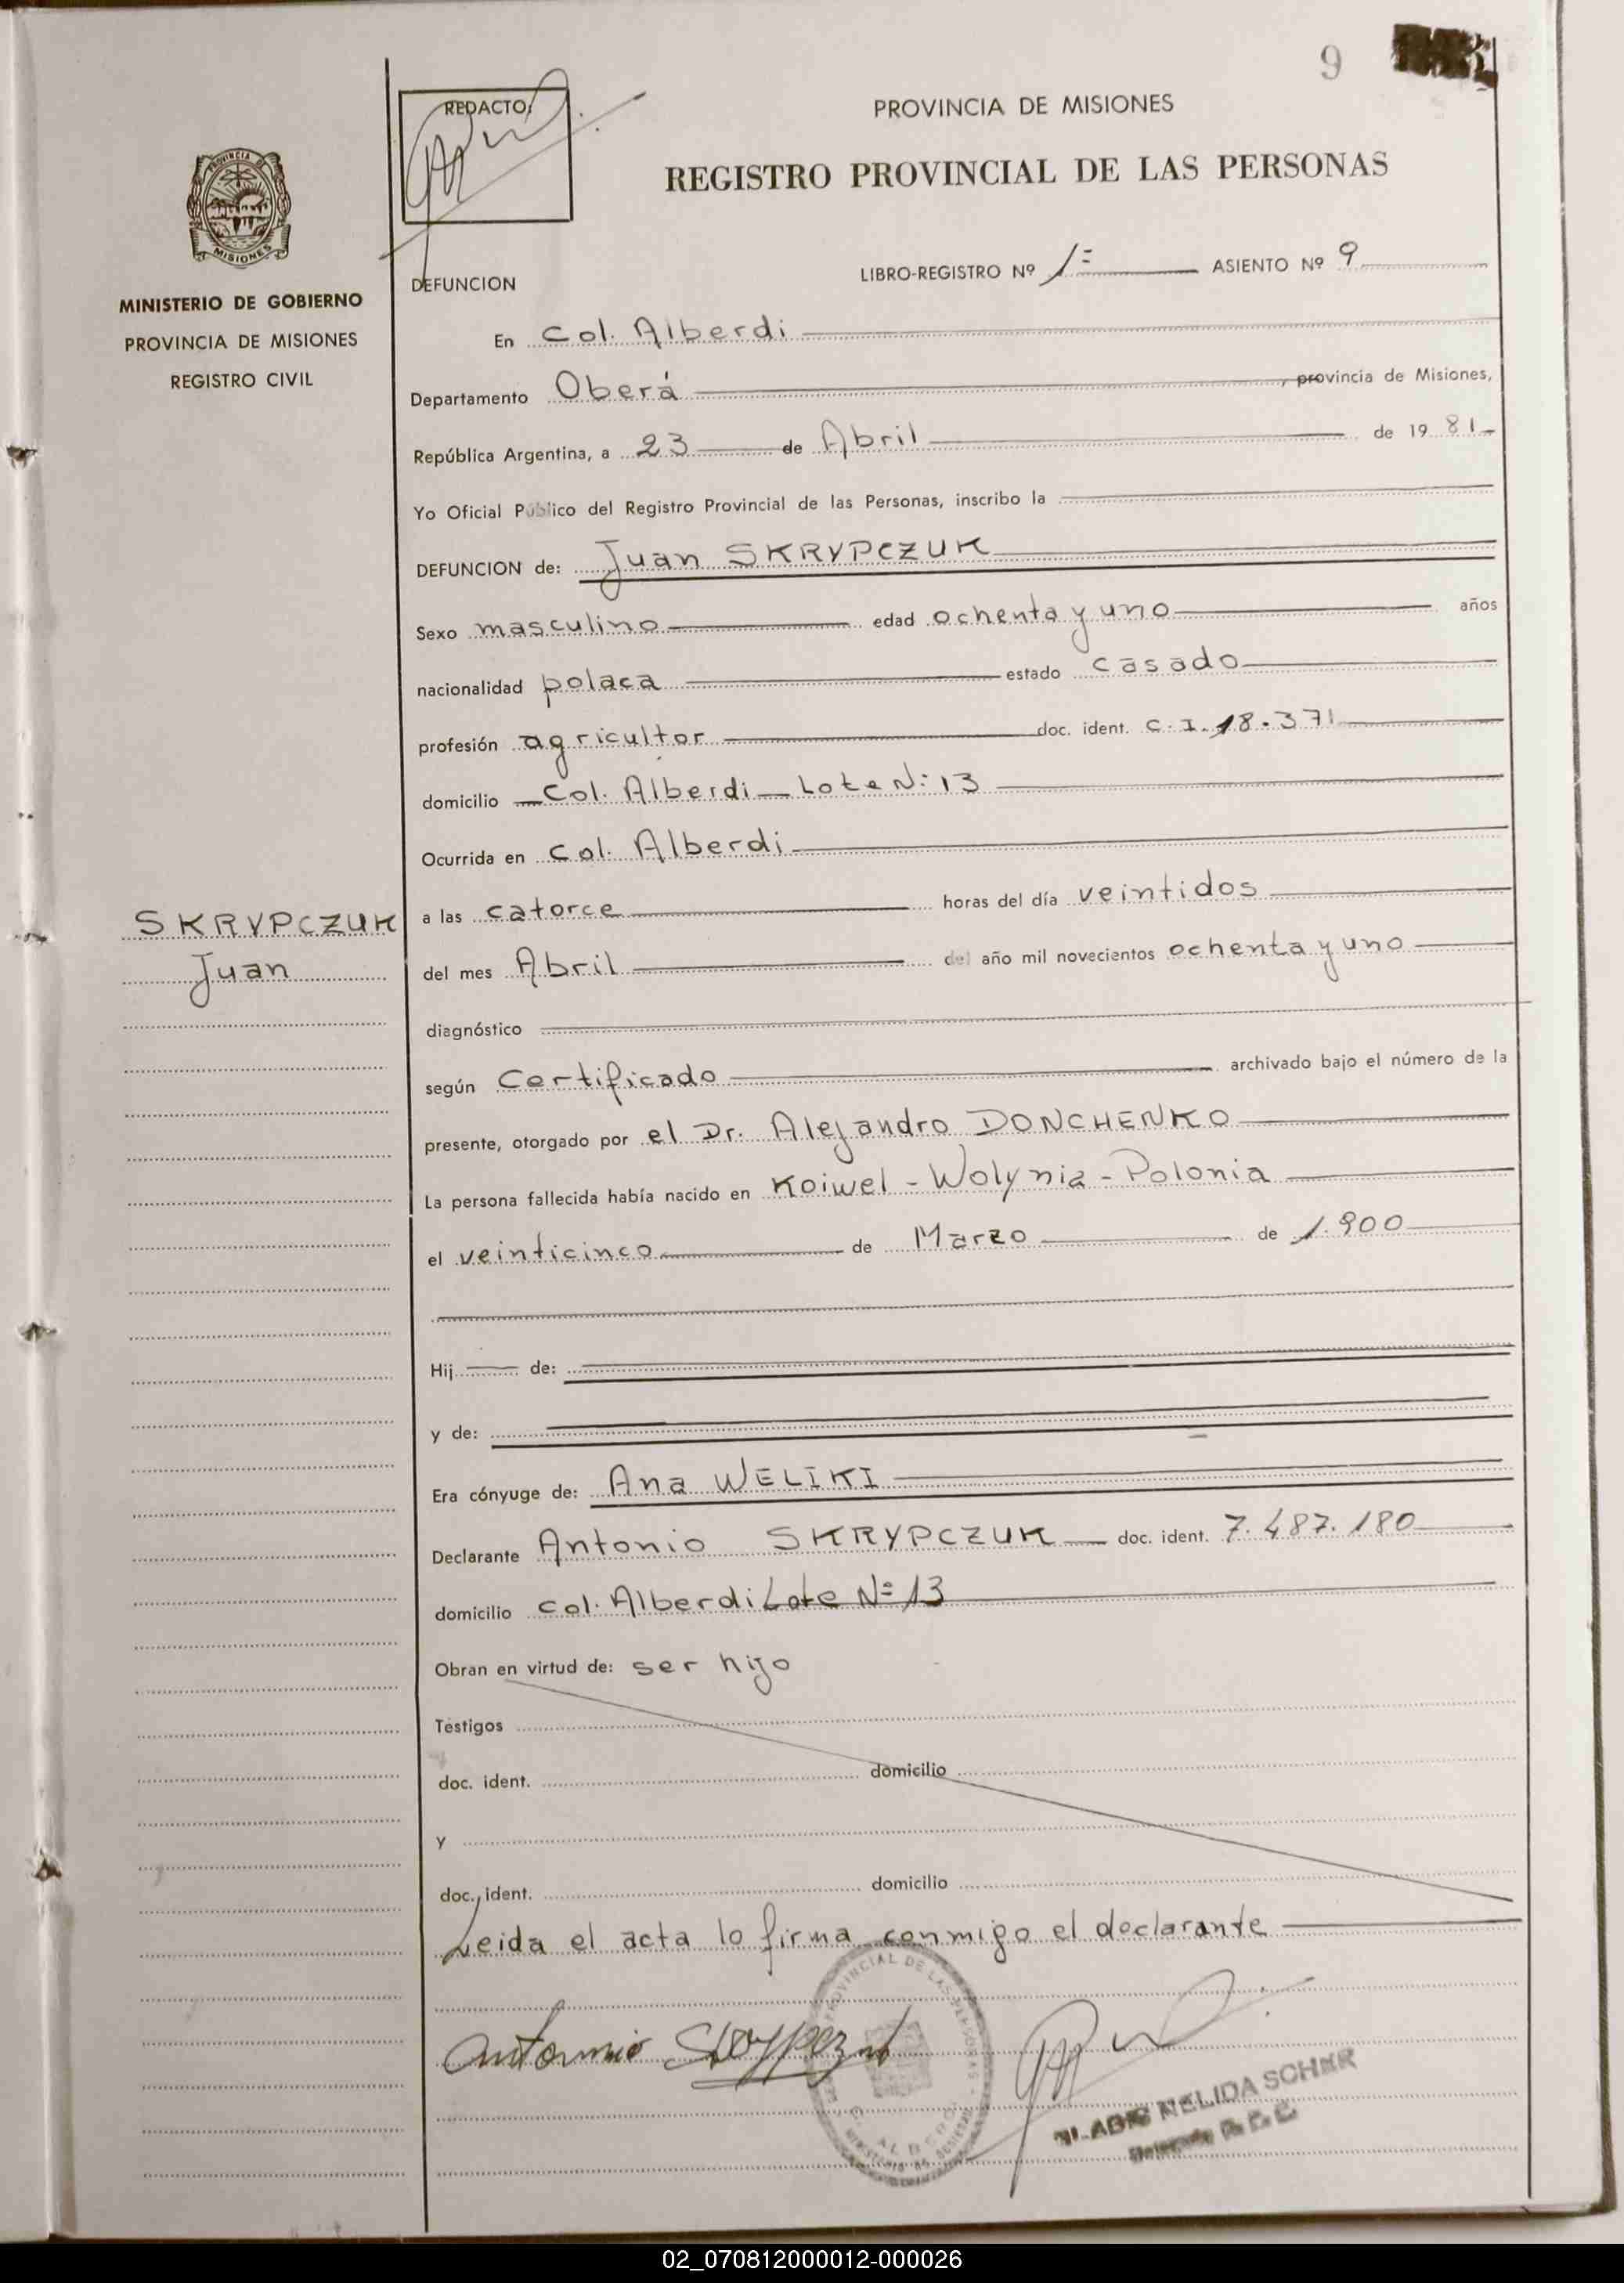 9
REDACTO:
PROVINCIA DE MISIONES
REGISTRO PROVINCIAL DE LAS PERSONAS
PROVINCIA DE
MISIONES
MINISTERIO DE GOBIERNO
PROVINCIA DE MISIONES
REGISTRO CIVIL
DEFUNCION
LIBRO-REGISTRO Nº 1= ASIENTO Nº 9
En Col. Alberdi
Departamento Oberá, provincia de Misiones,
República Argentina, a 23 de Abril de 1981-
Yo Oficial Público del Registro Provincial de las Personas, inscribo la
DEFUNCION de: Juan SKRYPCZUK
Sexo masculino edad ochenta y uno años
nacionalidad polaca estado casado
profesión agricultor doc. ident. C.I. 18.371
domicilio Col. Alberdi - Lote N: 13
Ocurrida en Col. Alberdi
SKRYPCZUK
Juan
a las catorce horas del día veintidos
del mes Abril del año mil novecientos ochenta y uno
diagnóstico
según Certificado archivado bajo el número de la
presente, otorgado por el Dr. Alejandro DONCHENKO
La persona fallecida había nacido en Koiwel - Wolynia - Polonia
el veinticinco de Marzo de 1.900
Hij de:
y de:
Era cónyuge de: Ana WELIKI
Declarante Antonio SKRYPCZUK doc. ident. 7.487.180
domicilio Col. Alberdi Lote Nº 13
Obran en virtud de: ser hijo
Testigos
doc. ident. domicilio
y
doc. ident. domicilio
Leida el acta lo firma conmigo el declarante
Antonnio Skrypczuk
PROVINCIAL DE LAS PERSONAS
NELIDA SCHER
02_070812000012-000026